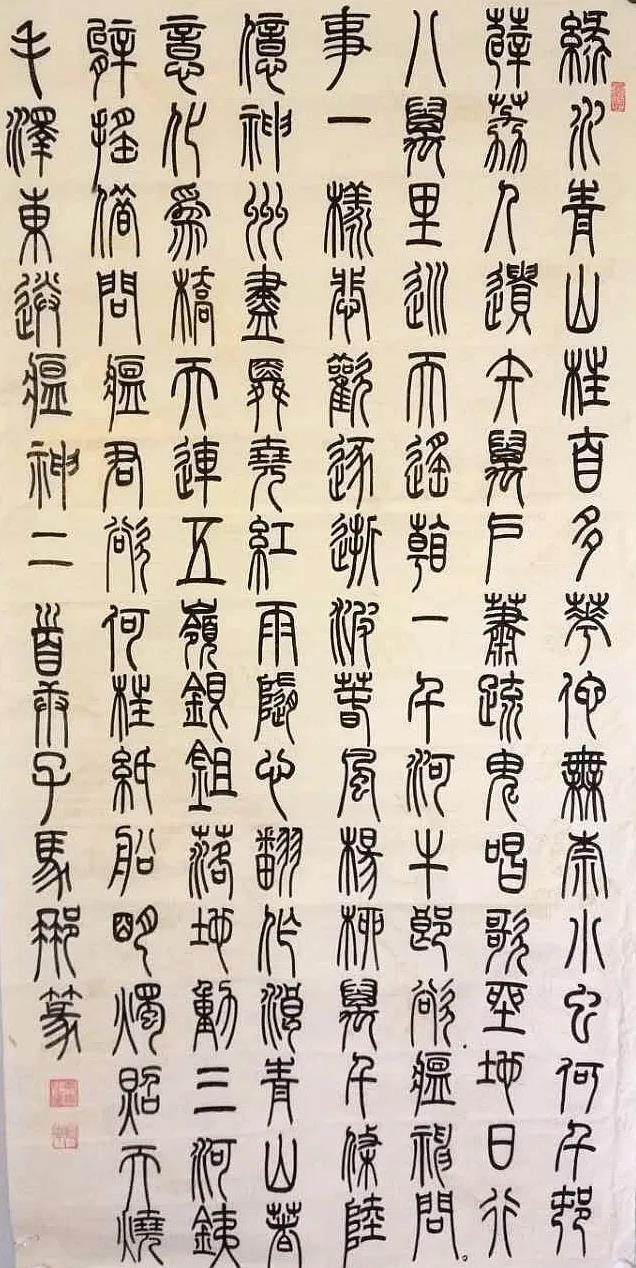 綠水青山枉自多華佗無奈小虫何千邨
薜荔人遺矢萬戶蕭疏鬼唱歌坐地日行
八萬里巡天遙看一千河牛郎欲瘟神問
事一樣悲歡逐逝波春風楊柳萬千條陸
億神州盡舜堯紅雨隨心翻作浪青山著
意化為橋天連五嶺銀鉏落地動三河銕
臂搖借問瘟君欲何往紙船明燭照天燒
毛澤東送瘟神二首子馬篆